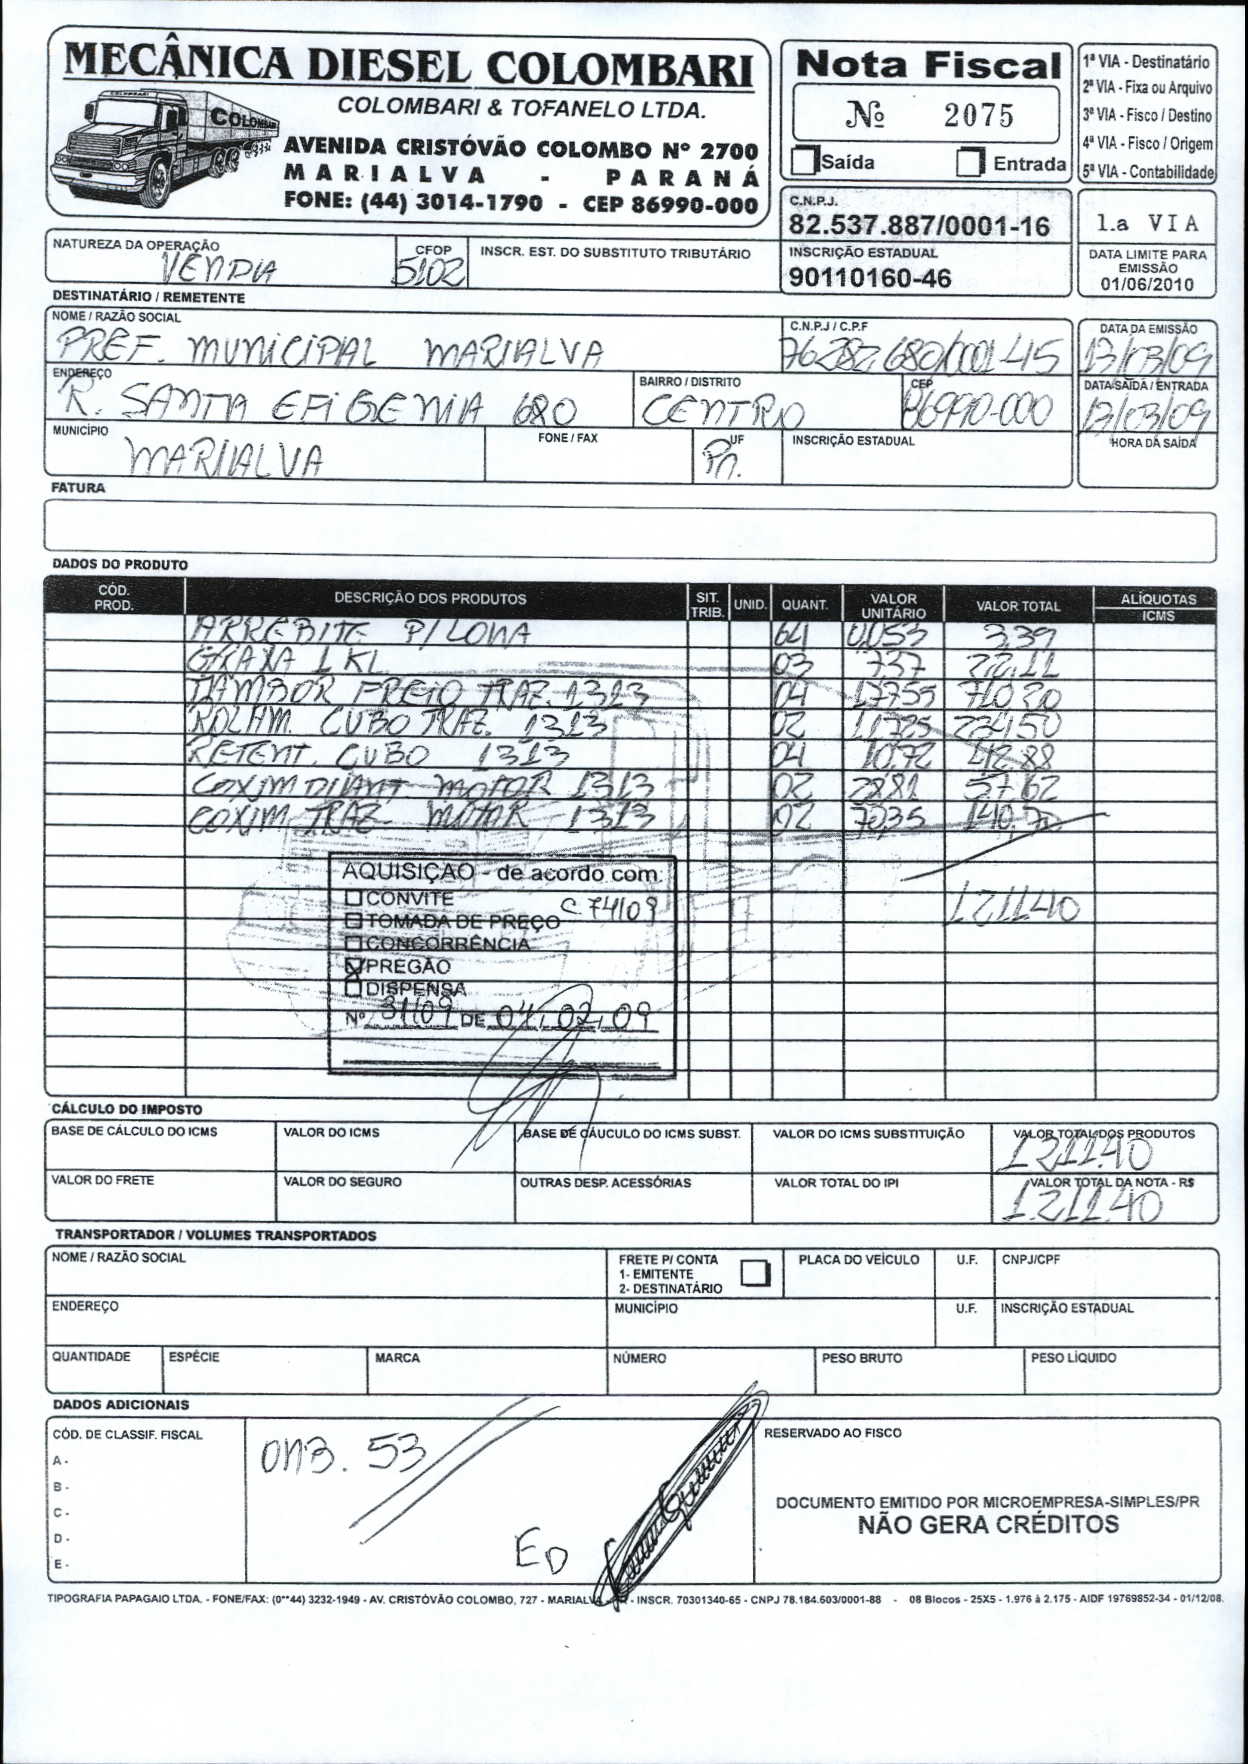 MECÂNICA DIESEL COLOMBARI
COLOMBARI & TOFANELO LTDA.
COLOMBARI
COLOMBARI
AVENIDA CRISTÓVÃO COLOMBO Nº 2700
MARIALVA - PARANÁ
FONE: (44) 3014-1790 - CEP 86990-000
Nota Fiscal
Nº 2075
Saída Entrada
1ª VIA - Destinatário
2ª VIA - Fixa ou Arquivo
3ª VIA - Fisco / Destino
4ª VIA - Fisco / Origem
5ª VIA - Contabilidade
C.N.P.J.
82.537.887/0001-16
INSCRIÇÃO ESTADUAL
90110160-46
1.a VIA
DATA LIMITE PARA
EMISSÃO
01/06/2010
NATUREZA DA OPERAÇÃO
VENDA
CFOP
5102
INSCR. EST. DO SUBSTITUTO TRIBUTÁRIO
DESTINATÁRIO / REMETENTE
NOME / RAZÃO SOCIAL
PREF. MUNICIPAL MARIALVA
C.N.P.J / C.P.F
76.282.680/001-45
DATA DA EMISSÃO
13/03/09
ENDEREÇO
R. SANTA EFIGENIA 680
BAIRRO / DISTRITO
CENTRO
CEP
86990-000
DATA SAÍDA / ENTRADA
13/03/09
MUNICÍPIO
MARIALVA
FONE / FAX
UF
Pr.
INSCRIÇÃO ESTADUAL
HORA DA SAÍDA
FATURA
DADOS DO PRODUTO
CÓD. PROD. DESCRIÇÃO DOS PRODUTOS SIT. TRIB. UNID. QUANT. VALOR UNITÁRIO VALOR TOTAL ALÍQUOTAS ICMS
ARREBITE P/ LONA 64 0,053 3,39
GRAXA 1 KL 03 7,37 22,11
TAMBOR FREIO TRAZ. 1313 04 177,55 710,20
ROLAM. CUBO TRAZ. 1313 02 117,25 234,50
RETENT. CUBO 1313 04 10,72 42,88
COXIM DIANT MOTOR 1313 02 28,81 57,62
COXIM TRAZ. MOTOR 1313 02 70,35 140,70
1.211,40
AQUISIÇÃO - de acordo com:
CONVITE C 74/09
TOMADA DE PREÇO
CONCORRÊNCIA
PREGÃO
DISPENSA
Nº 31/09 DE 04.02.09
CÁLCULO DO IMPOSTO
BASE DE CÁLCULO DO ICMS
VALOR DO ICMS
BASE DE CÁUCULO DO ICMS SUBST.
VALOR DO ICMS SUBSTITUIÇÃO
VALOR TOTAL DOS PRODUTOS
1.211,40
VALOR DO FRETE
VALOR DO SEGURO
OUTRAS DESP. ACESSÓRIAS
VALOR TOTAL DO IPI
VALOR TOTAL DA NOTA - R$
1.211,40
TRANSPORTADOR / VOLUMES TRANSPORTADOS
NOME / RAZÃO SOCIAL
FRETE P/ CONTA
1- EMITENTE
2- DESTINATÁRIO
PLACA DO VEÍCULO
U.F.
CNPJ/CPF
ENDEREÇO
MUNICÍPIO
U.F.
INSCRIÇÃO ESTADUAL
QUANTIDADE
ESPÉCIE
MARCA
NÚMERO
PESO BRUTO
PESO LÍQUIDO
DADOS ADICIONAIS
CÓD. DE CLASSIF. FISCAL
A -
B -
C -
D -
E -
ONB. 53
ED
RESERVADO AO FISCO
DOCUMENTO EMITIDO POR MICROEMPRESA-SIMPLES/PR
NÃO GERA CRÉDITOS
TIPOGRAFIA PAPAGAIO LTDA. - FONE/FAX: (0**44) 3232-1949 - AV. CRISTÓVÃO COLOMBO, 727 - MARIALVA - INSCR. 70301340-65 - CNPJ 78.184.603/0001-88 - 08 Blocos - 25X5 - 1.976 à 2.175 - AIDF 19769852-34 - 01/12/08.